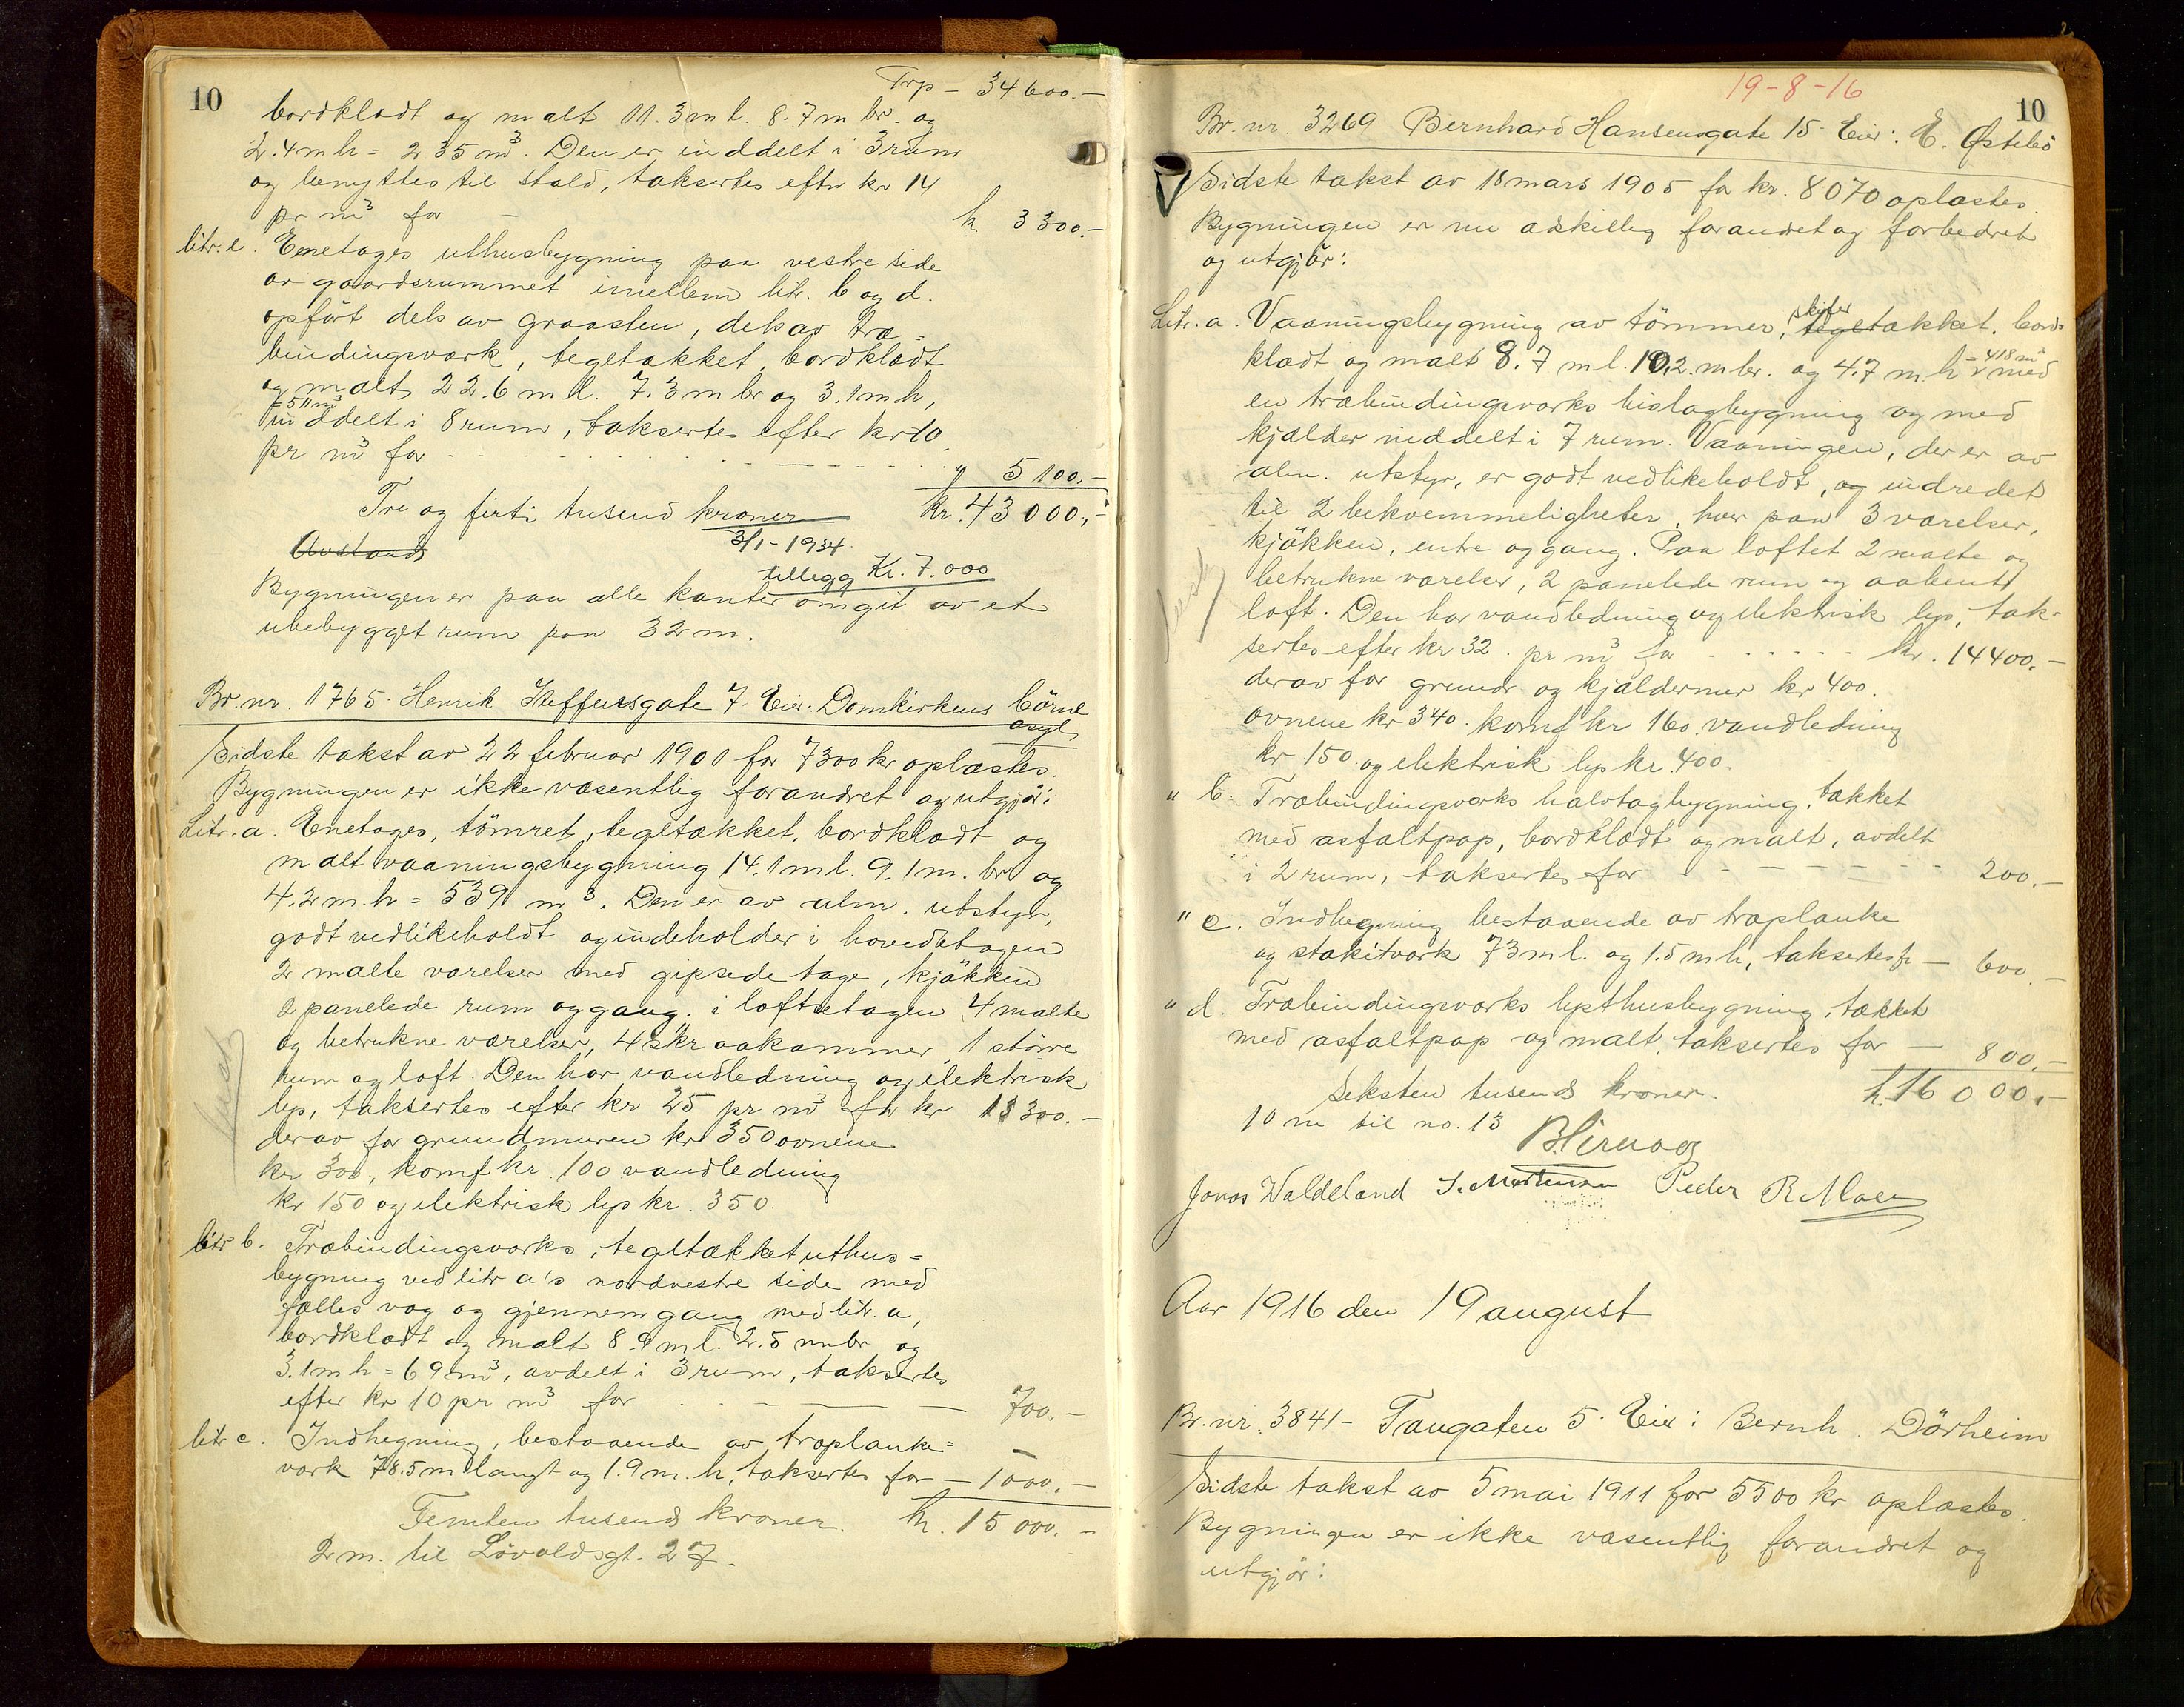 10
Trp - 34600.-
bordklædt og malt 11.3 m l. 8.7 m br. og
2.4 m h = 235 m³. Den er inddelt i 3 rum
og benyttes til stald, taksertes efter kr 14
pr m³ for - k. 3300.-
litr. e. Enetages uthusbygning paa vestre side
av gaardsrummet imellem litr. b og d.
opfört dels av graasten, dels av træ-
bindingsværk, tegltækket, bordklædt
og malt 22.6 m l. 7.3 m br og 3.1 m h,
= 511 m³
inddelt i 8 rum, taksertes efter kr 10
pr m³ for - - - - - " 5100.-
Tre og firti tusend kroner kr. 43000,-
3/1-1934.
Avstand
tillegg Kr. 7.000
Bygningen er paa alle kanter omgit av et
ubebygget rum paa 32 m.
Br. nr. 1765. Henrik Steffensgate 7. Eier. Domkirkens börne
asyl
Sidste takst av 22 februar 1901 for 7300 kr oplæstes.
Bygningen er ikke væsentlig forandret og utgjör:
Litr. a. Enetages, tömret, tegltækket, bordklædt og
malt vaaningsbygning 14.1 m l. 9.1 m. br og
4.2 m. h = 539 m³. Den er av alm. utstyr,
godt vedlikeholdt og indeholder i hovedetagen
2 malte værelser med gipsede tage, kjökken
2 panelede rum og gang. i loftsetagen 4 malte
og betrukne værelser, 4 skraakammer, 1 större
rum og loft. Den har vandledning og elektrisk
lys, taksertes efter kr 25 pr m³ for kr 13300.-
derav for grundmuren kr 350 ovnene
kr 300, komf kr. 100 vandledning
kr 150 og elektrisk lys kr. 350.
litr b. Træbindingsværks, tegltækket uthus=
bygning ved litr a's nordvestre side med
fælles væg og gjennemgang med litr. a,
bordklædt og malt 8.9 m l. 2.5 m br og
3.1 m h = 69 m³, avdelt i 3 rum, taksertes
efter kr 10 pr m³ for - - - 700.-
litr c. Indhegning, bestaaende av træplanke=
værk 78.5 m langt og 1.9 m. h, taksertes for - 1000.-
Femten tusend kroner. k. 15000.-
2 m. til Lövoldsgt. 27.
19-8-16
10
Br. nr. 3269 Bernhard Hansensgate 15 Eier: E. Östebö
Sidste takst av 18 mars 1905 for kr. 8070 oplæstes.
Bygningen er nu adskillig forandret og forbedret
og utgjör:
skifer
Litr. a. Vaaningsbygning av tömmer, tegltækket. bord=
klædt og malt 8.7 m l. 10.2 m br. og 4.7 m. h = 418 m³ med
en træbindingsværks bislagbygning og med
kjælder inddelt i 7 rum. Vaaningen, der er av
alm. utstyr, er godt vedlikeholdt, og indredet
til 2 bekvemmeligheter, hver paa 3 værelser,
kjökken, entre og gang. Paa loftet 2 malte og
betrukne værelser, 2 panelede rum og aabent
loft. Den har vandledning og elektrisk lys, tak-
sertes efter kr 32. pr m³ for - - - - kr. 14400.-
derav for grundr og kjældermur kr 400.
ovnene kr 340. komf kr 160. vandledning
kr 150 og elektrisk lys kr. 400.
" b. Træbindingsværks halvtagbygning, tækket
med asfaltpap, bordklædt og malt, avdelt
i 2 rum, taksertes for - - - - 200.-
" c. Indhegning bestaaende av træplanke
og stakitværk 73 m l. og 1.5 m h, taksertes fr - 600.-
" d. Træbindingsværks lysthusbygning, tækket
med asfaltpap og malt, taksertes for - 800.-
Seksten tusend kroner. k. 16000.-
10 m til no. 13
Jonas Waldeland S. Mortensen Peder R. Moen
Aar 1916 den 19 august
Br. nr. 3841- Taugaten 5. Eier: Bernh. Dörheim
Sidste takst av 5 mai 1911 for 5500 kr oplæstes.
Bygningen er ikke væsentlig forandret og
utgjör: